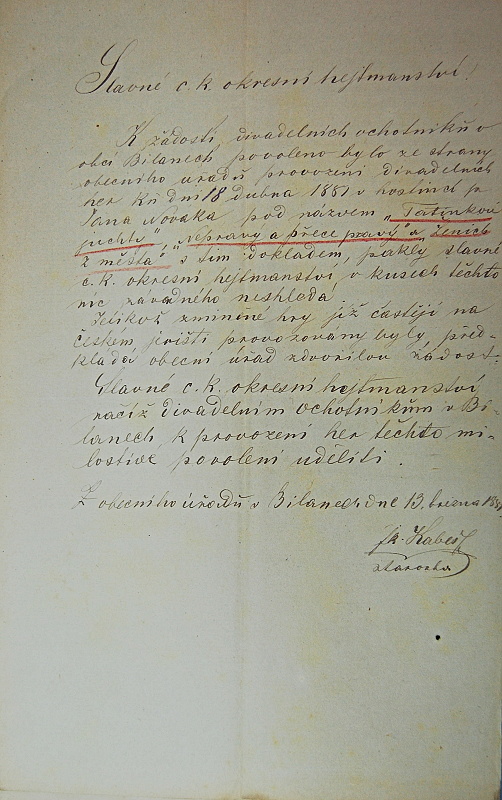 Slavné c. k. okresní hejtmanství!
K žádosti, divadelních ochotníků v
obci Bílanech, povoleno bylo ze strany
obecního úřadu provození divadelních
her ku dni 18 dubna 1881 v hostinci p.
Jana Nováka pod názvem „Tatínkovi
juchty", „Nepravý a přece pravý" a „Ženich
z města" s tím dokladem, pakly slavné
c. k. okresní hejtmanství, v kusech těchto
nic závadného neshledá.
Jelikož zmíněné hry již častěji na
českém jevišti provozovány byly, před-
kládá obecní úřad zdvořilou žádost:
Slavné c. k. okresní hejtmanství
račiž divadelním ochotníkům v Bí-
lanech, k provození her těchto mi-
lostivé povolení uděliti.
Z obecního úřadu v Bílanech, dne 13. března 1881
Fr. Kabeš
starosta